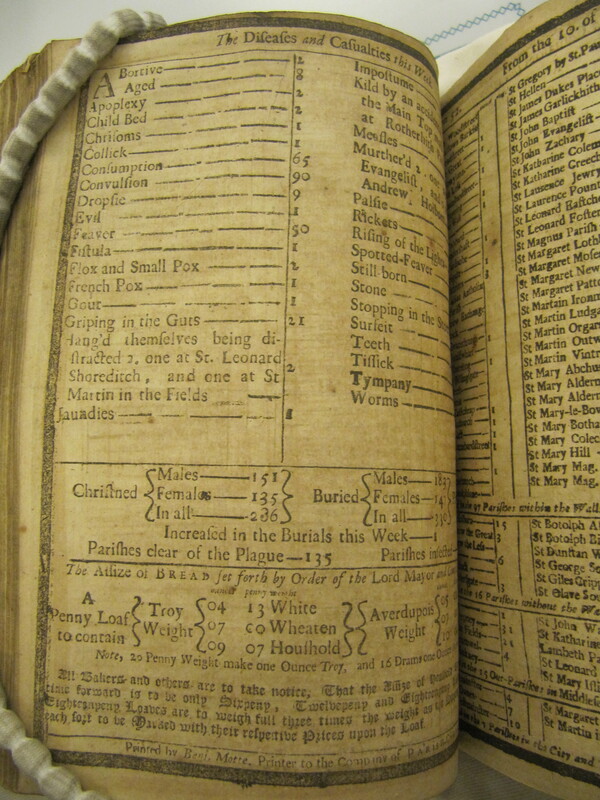 The Diseases and Casualties this
Abortive 2
Aged 8
Apoplexy 2
Child Bed 2
Chrisoms 1
Collick 1
Consumption 65
Convulsion 90
Dropsie 9
Evil 1
Feaver 50
Fistula 1
Flox and Small Pox 2
French Pox 1
Gout 1
Griping in the Guts 21
Hang'd themselves being di-
stracted 2. one at St. Leonard
Shoreditch, and one at St
Martin in the Fields 2
Jaundies 1
Impostume
Kild by an
the Main Top
at Rotherhith
Measles
Murther'd 2. one
Evangelist, and
Andrew, Holborn
Palsie
Rickets
Rising of the Lights
Spotted-Feaver
Still born
Stone
Stopping in the
Surfeit
Teeth
Tissick
Tympany
Worms
Christned
Males 151
Females 135
In all 286
Buried
Males
Females
In all
Increased in the Burials this Week
Parishes clear of the Plague 135 Parishes infected
The Assize of BREAD set forth by Order of the Lord Mayor and
A
Penny Loaf
to contain
Troy
Weight
04 13 White
07 00 Wheaten
09 07 Houshold
Averdupois
Weight
Note, 20 Penny Weight make one Ounce Troy, and 16 Drams one Ounce
All Bakers and others are to take notice, That the Assize of
time forward is to be only Sixpeny, Twelvepeny and Eighteenpeny
Eighteenpeny Loaves are to weigh full three times the weight
each sort to be Marked with their respective Prices upon the Loaf.
Printed by Benj. Motte, Printer to the Company of
From the 10. of
St Gregory by St. Paul
St Hellen
St James Dukes Place
St James Garlickhith
St John Baptist
St John Evangelist
St John Zachary
St Katharine Colem
St Katharine Creech
St Laurence Jewry
St Laurence Pount
St Leonard Eastche
St Leonard Foster
St Magnus Parish
St Margaret Lothb
St Margaret Moses
St Margaret New
St Margaret Patto
St Martin Ironm
St Martin Ludga
St Martin Organ
St Martin Outw
St Martin Vintr
St Mary Abchu
St Mary Alderm
St Mary Alderm
St Mary-le-Bow
St Mary Botha
St Mary Colec
St Mary Hill
St Mary Mag.
St Mary Mag.
97 Parishes within the Walls
St Botolph Al
St Botolph Bi
St Dunstan W
St George So
St Giles Cripp
St Olave Sou
16 Parishes without the Wa
St John W
St Katharin
Lambeth Pa
St Leonard
St Mary Isli
Out-Parishes in Middlesex
St Margaret
St Martin in
Parishes in the City and